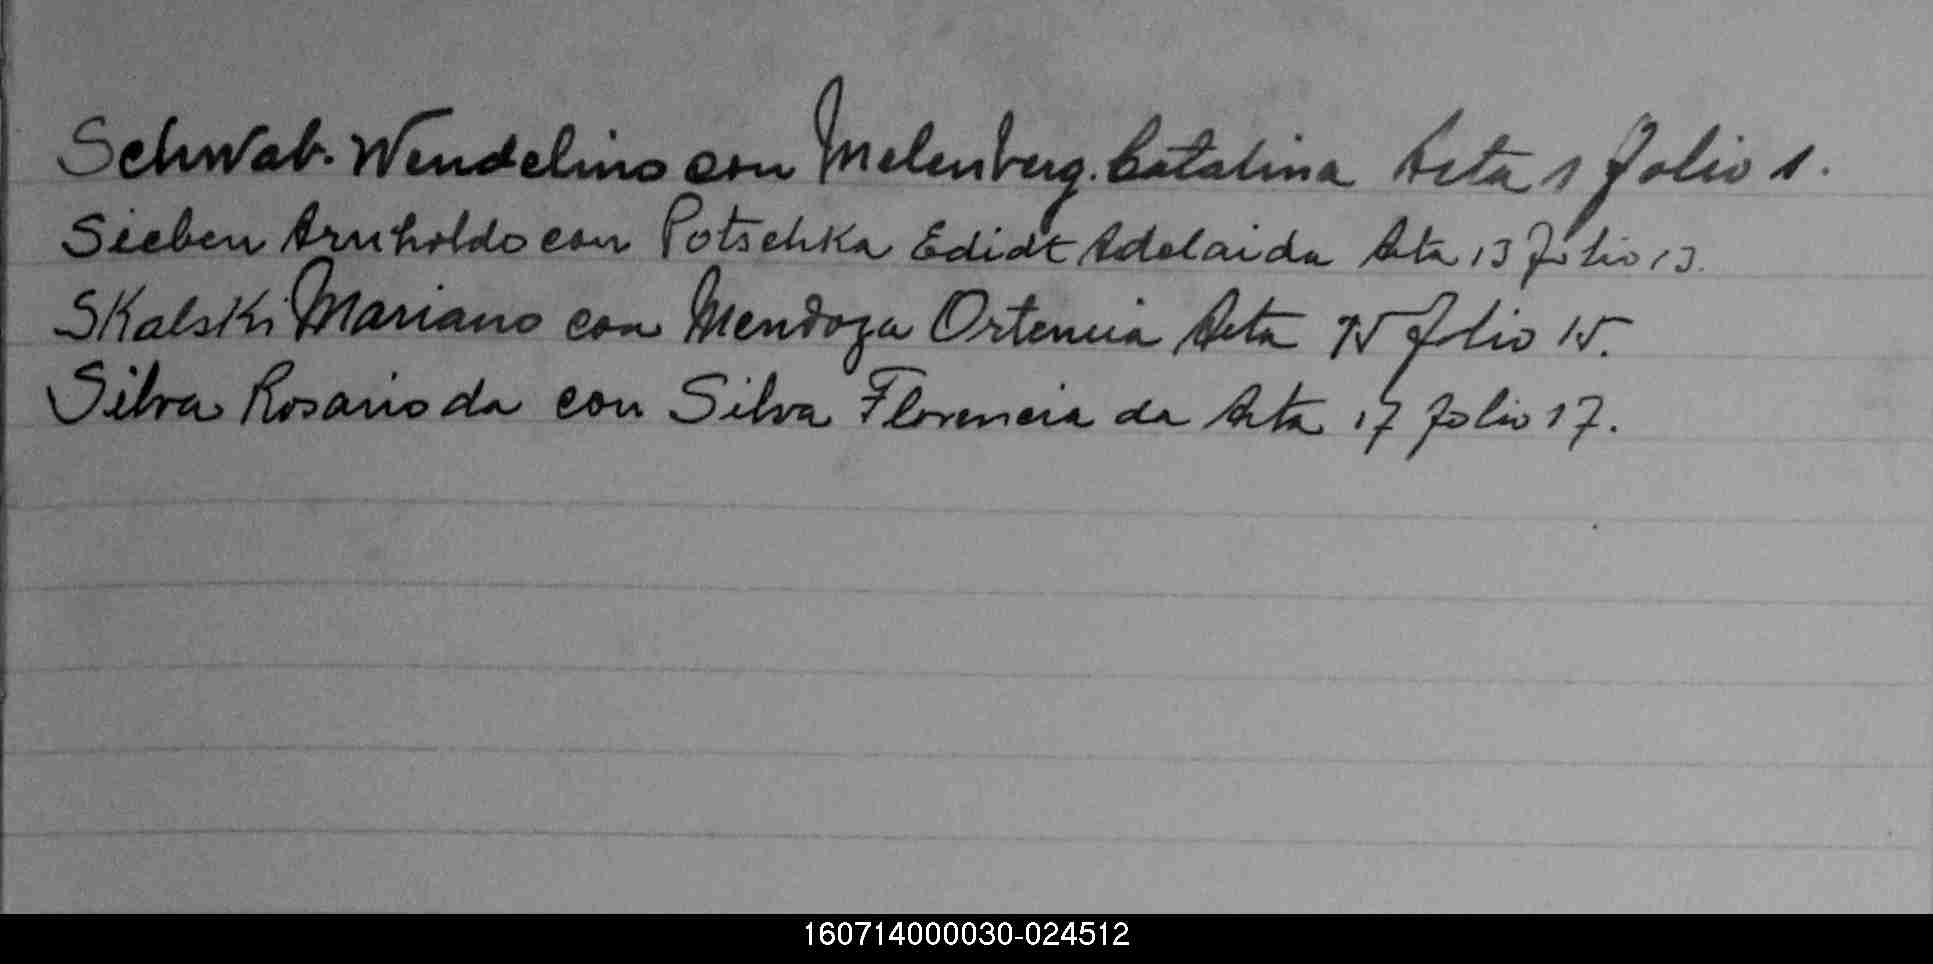 Schwab. Wendelino con Melenberg. Catalina Acta 1 folio 1.
Sieben Arnholdo con Potschka Edidt Adelaida Acta 13 folio 13.
Skalski Mariano con Mendoza Ortencia Acta 15 folio 15.
Silva Rosario da con Silva Florencia da Acta 17 folio 17.
160714000030-024512